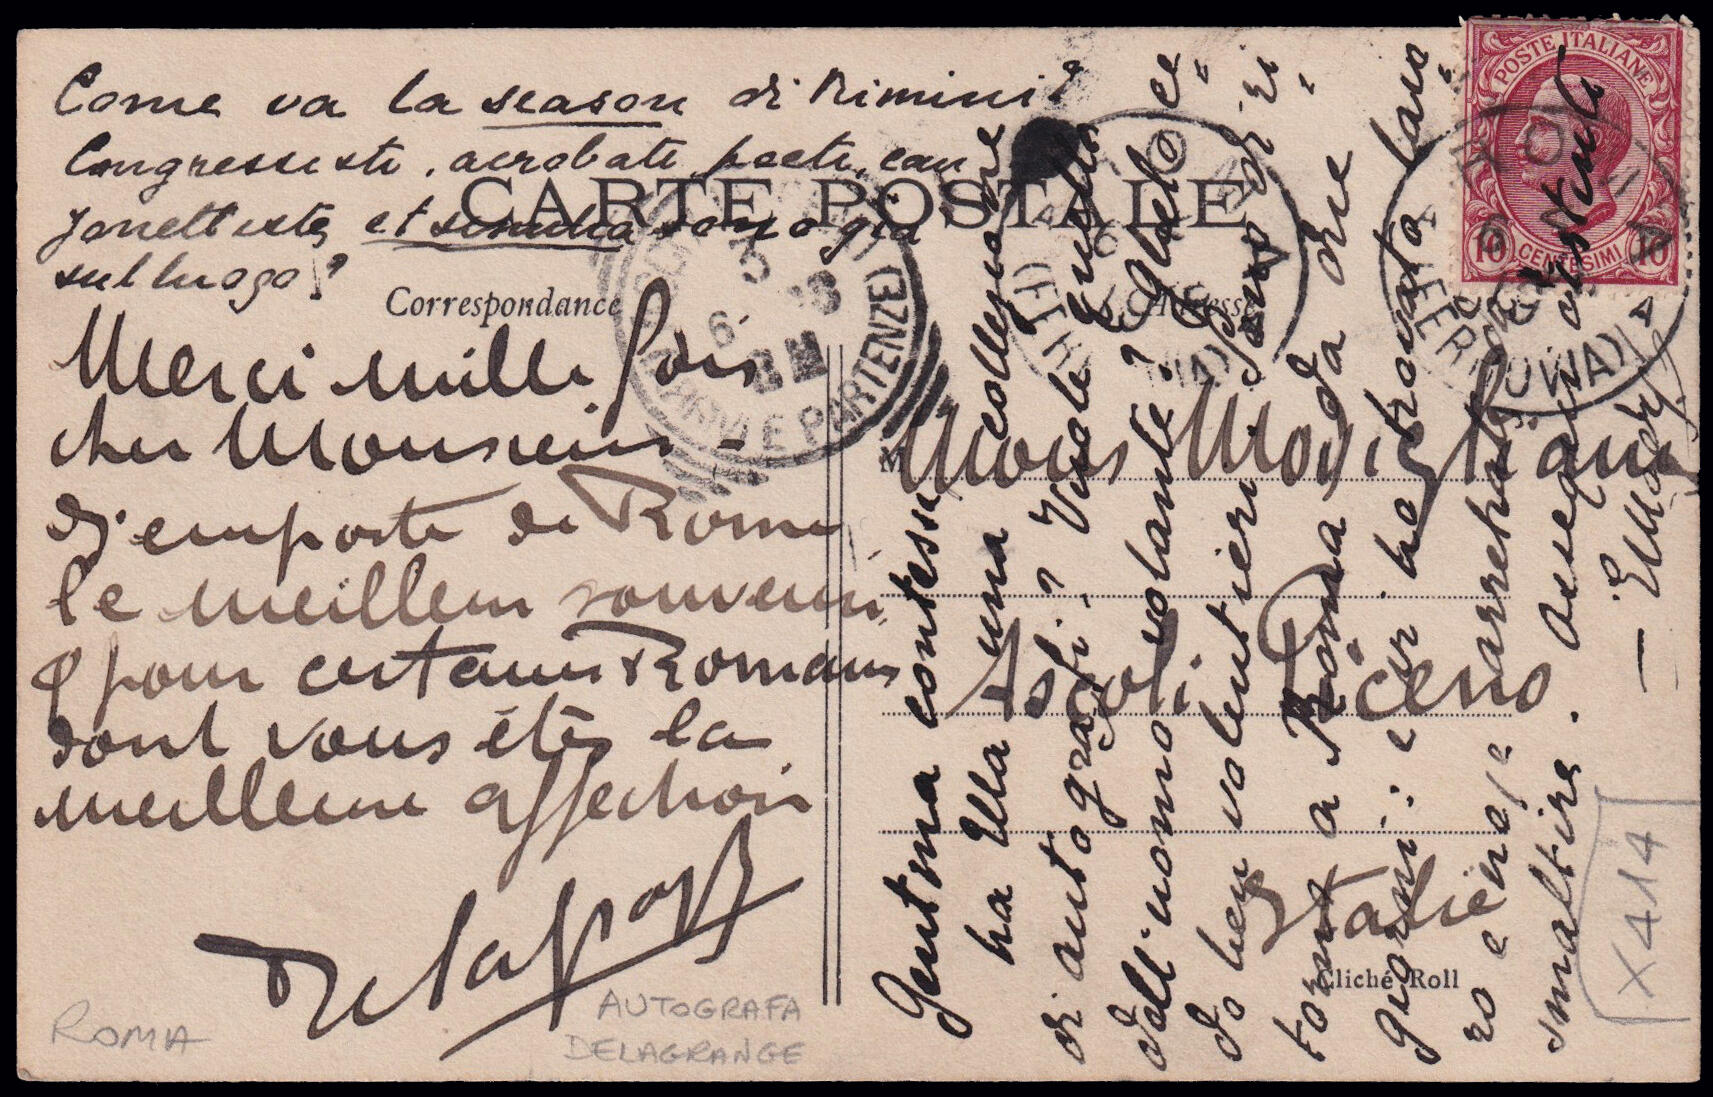 Come va la season di Rimini?
Congressisti, acrobati, poeti, can
zonettiste, et similia sono già
sul luogo?
CARTE POSTALE
Correspondance
Adresse
Merci mille fois
cher Monsieur -
J'emporte de Rome
le meilleur souvenir
& pour certains Romains
dont vous êtes la
meilleure affection
Delagrange
ROMA
AUTOGRAFA
DELAGRANGE
POSTE ITALIANE
10 CENTESIMI 10
ROMA
(FERROVIA)
ARRIVI E PARTENZE
M
Mons
Ascoli Piceno
Italie
Cliché Roll
X414
Gentma contessa
ha Ella una collezione
di autografi? Vuole quello
dell'uomo volante? Glielo ce
do ben volentieri. Sono di ri
torno a Roma da due
giorni: e vi ho trovato lavo
ro e noje arretrate
smaltire. Ossequi